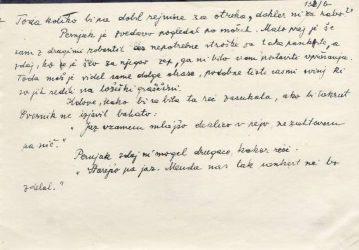 Toda koliko bi pa dobil rejnine za otroka, dokler ni za rabo?
Pernjak je predavov pogledal po možeh. Malo prej je še
sam z drugimi robantil nepotrebne stroške za take pankrte, a
zdaj, ko je šlo za njegov žep, ga ni bilo sram postaviti vprašanja.
Toda može je videl same dolge obraze, podobne tisti rasni svinji, ki
so jih redili na graščini.
Kdove, kako bi se bila ta reč zasukala, ako bi takrat
ne izjavil bahato:
" Jaz vzamem mlajšo deklico v rejo, ne zahtevam
za nič."
Pernjak zdaj ni mogel drugače, kakor reči:
" Starejšo pa jaz. Menda nas tak ne bo
snedel."